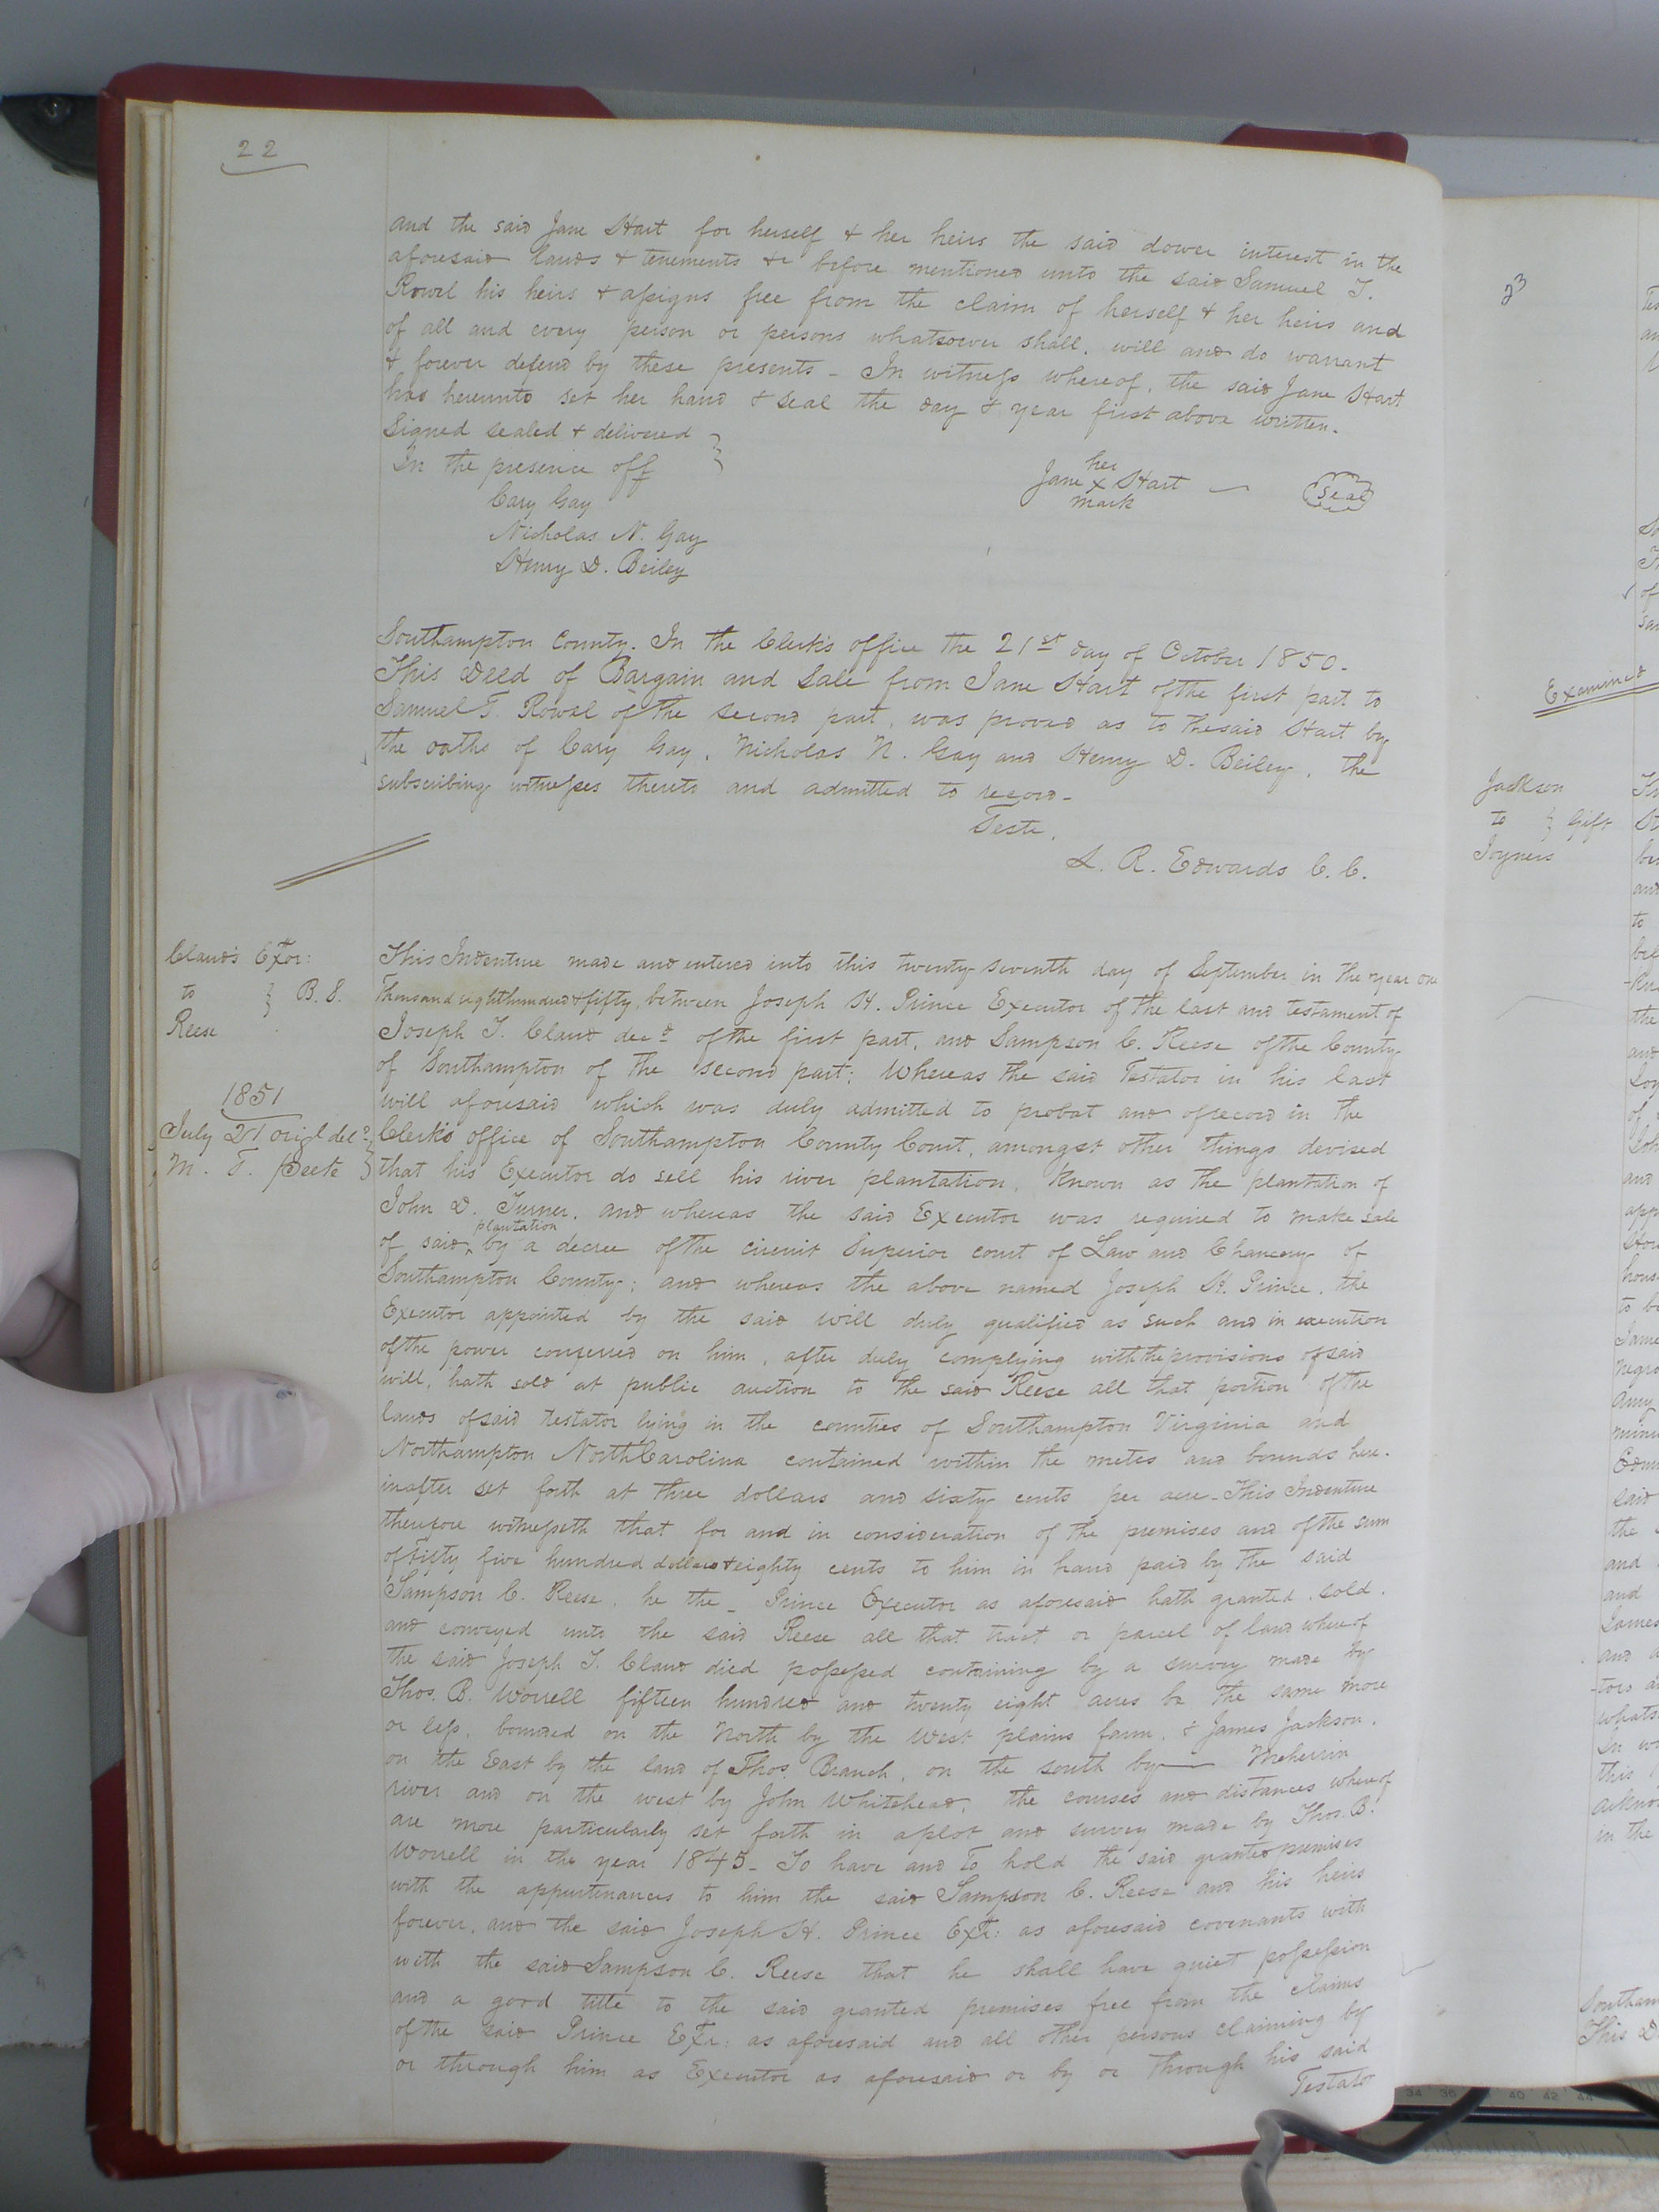 22
and the said Jane Hart for herself & her heirs the said dower interest in the
aforesaid lands & tenements &c before mentioned unto the said Samuel T.
Rowel his heirs & assigns free from the claim of herself & her heirs and
of all and every person or persons whatsoever shall, will and do warrant
& forever defend by these presents – In witness whereof, the said Jane Hart
has hereunto set her hand & seal the day & year first above written.
Signed sealed & delivered
In the presence off
her
Jane x Hart
mark
seal
Cary Gay
Nicholas N. Gay
Henry D. Beiley
Southampton County. In the Clerk's office the 21st day of October 1850.
This Deed of Bargain and Sale from Jane Hart of the first part to
Samuel T. Rowel of the second part, was proved as to the said Hart by
the oaths of Cary Gay, Nicholas N. Gay and Henry D. Beiley, the
subscribing witnesses thereto and admitted to record –
Teste,
L. R. Edwards C. C.
Claud's Exor:
to } B. S.
Reese
1851
July 21 origl decd
M. T. Peete
This Indenture made and entered into this twenty seventh day of September in the year one
Thousand eight hundred & fifty, between Joseph H. Prince Executor of the last and testament of
Joseph T. Claud decd of the first part, and Sampson C. Reese of the County
of Southampton of the second part; Whereas the said Testator in his last
will aforesaid which was duly admitted to probat and of record in the
Clerk's office of Southampton County Court, amongst other things devised
that his Executor do sell his river plantation, Known as the plantation of
John D. Turner, and whereas the said Executor was required to make sale
of said ^plantation by a decree of the circuit Superior court of Law and Chancery of
Southampton County; and whereas the above named Joseph H. Prince, the
Executor appointed by the said will duly qualified as such and in execution
of the power conferred on him, after duly complying with the provisions of said
will, hath sold at public auction to the said Reese all that portion of the
lands of said testator lying in the counties of Southampton Virginia and
Northampton North Carolina contained within the metes and bounds here-
inafter set forth at three dollars and sixty cents per acre – This Indenture
therefore witnesseth that for and in consideration of the premises and of the sum
of fifty five hundred dollars & eighty cents to him in hand paid by the said
Sampson C. Reese, he the – Prince Executor as aforesaid hath granted, sold,
and conveyed unto the said Reese all that tract or parcel of land whereof
the said Joseph T. Claud died possessed containing by a survey made by
Thos. B. Worrell fifteen hundred and twenty eight acres be the same more
or less, bounded on the North by the West plains farm, & James Jackson,
on the East by the land of Thos. Branch, on the south by — Meherrin
river and on the west by John Whitehead, the courses and distances whereof
are more particularly set forth in a plot and survey made by Thos. B.
Worrell in the year 1845 – To have and to hold the said granted premises
with the appurtenances to him the said Sampson C. Reese and his heirs
forever, and the said Joseph H. Prince Exr: as aforesaid covenants with
with the said Sampson C. Reese that he shall have quiet possession
and a good title to the said granted premises free from the claims
of the said Prince Exr: as aforesaid and all other persons claiming by
or through him as Executor as aforesaid or by or through his said
Testator
23
Examined
Jackson
to } Gift
Joyners